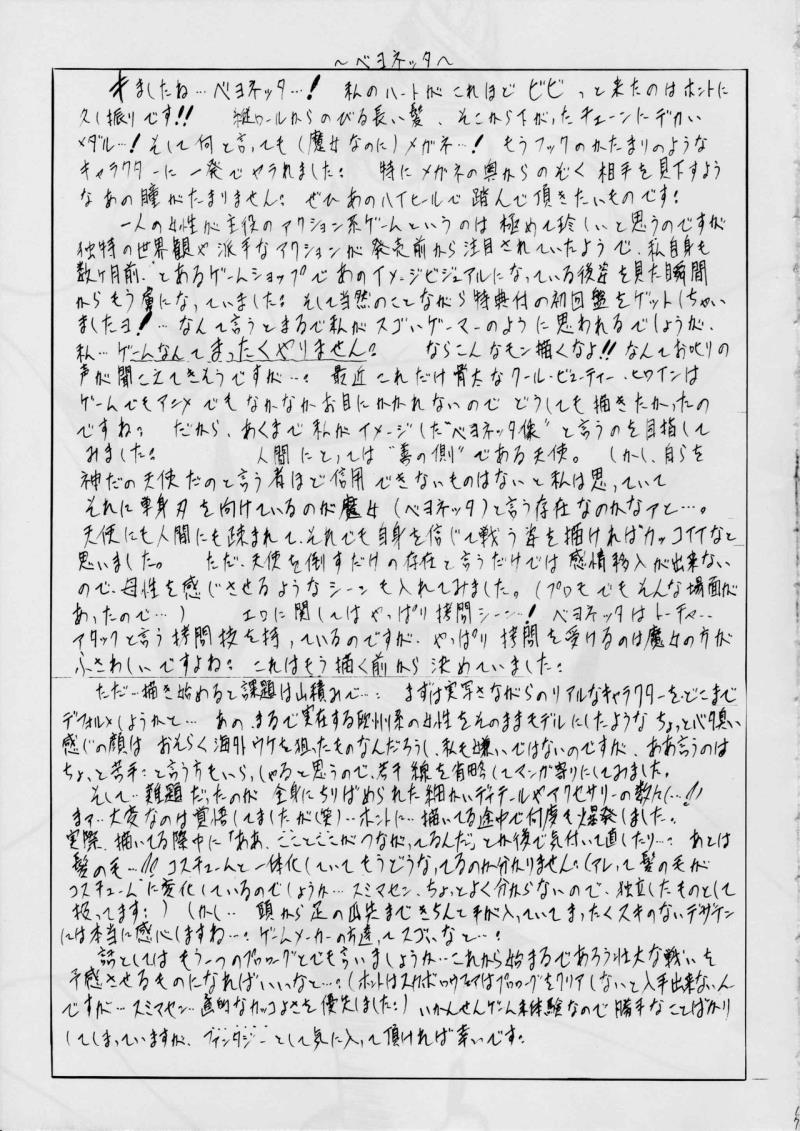 ～ベヨネッタ～
きましたね…ベヨネッタ…! 私のハートがこれほど ビビっと来たのはホントに
久し振りです!! 縦ロールからのびる長い髪、そこから下がったチェーンにデカい
メダル…! そして何と言っても(魔女なのに)メガネ…! もうフックのかたまりのような
キャラクターに一発でヤラれました。 特にメガネの奥からのぞく相手を見下すよう
なあの瞳がたまりません。 ぜひあのハイヒールで踏んで頂きたいものです。
一人の女性が主役のアクション系ゲームというのは極めて珍しいと思うのですが
独特の世界観や派手なアクションが発売前から注目されていたようで、私自身も
数ヶ月前、とあるゲームショップであのイメージビジュアルになっている後姿を見た瞬間
からもう虜になっていました。そして当然のことながら特典付の初回盤をゲットしちゃい
ましたヨ!…なんて言うとまるで私がスゴいゲーマーのように思われるでしょうが、
私…ゲームなんてまったくやりません。 ならこんなモン描くなよ!!なんてお叱りの
声が聞こえてきそうですが…。最近これだけ骨太なクール・ビューティー・ヒロインは
ゲームでもアニメでもなかなかお目にかかれないのでどうしても描きたかったの
ですね。 だから、あくまで私がイメージした“ベヨネッタ像”と言うのを目指して
みました。 人間にとっては“善の側”である天使。しかし、自らを
神だの天使だのと言う者ほど信用できないものはないと私は思っていて
それに単身刃を向けているのが魔女(ベヨネッタ)と言う存在なのかなアと…。
天使にも人間にも疎まれて、それでも自身を信じて戦う姿を描ければカッコイイなと
思いました。 ただ、天使を倒すだけの存在と言うだけでは感情移入が出来ない
ので、母性を感じさせるようなシーンも入れてみました。(プロモでもそんな場面が
あったので…) エロに関してはやっぱり拷問シーン…! ベヨネッタはトーチャー・
アタックと言う拷問技を持っているのですが、やっぱり拷問を受けるのは魔女の方が
ふさわしいですよね。これはもう描く前から決めていました。
ただ…描き始めると課題は山積みで…。 まずは実写さながらのリアルなキャラクターをどこまで
デフォルメしようかと… あの、まるで実在する欧州系の女性をそのままモデルにしたようなちょっとバタ臭い
感じの顔は おそらく海外ウケを狙ったものなんだろうし、私も嫌いではないのですが、ああ言うのは
ちょっと苦手…と言う方もいらっしゃると思うので、若干線を省略してマンガ寄りにしてみました。
そして…難題だったのが 全身にちりばめられた細かいディテールやアクセサリーの数々…!!
まァ…大変なのは覚悟してましたが(笑)…ホントに…描いてる途中で何度も爆発しました。
実際、描いてる際中に「ああ、こことここがつながってるんだ」とか後で気付いて直したり…。あとは
髪の毛…!!! コスチュームと一体化していてもうどうなってるのか分かりません。(アレって髪の毛が
コスチュームに変化しているのでしょうか…スミマセン、ちょっとよく分からないので、独立したものとして
扱ってます。) しかし… 頭から足の爪先まできちんと手が入っていてまったくスキのないデザイン
には本当に感心しますね…。ゲームメーカーの方達ってスゴいなと…。
話としては もう一つのプロローグとでも言いましょうか…これから始まるであろう壮大な戦いを
予感させるものになればいいなと…。(ホントはスカボロウフェアはプロローグをクリアしないと入手出来ないん
ですが…スミマセン…画的なカッコよさを優先しました。) いかんせんゲーム未体験なので勝手なことばかり
してしまっていますが、ファンタジーとして気に入って頂ければ幸いです。